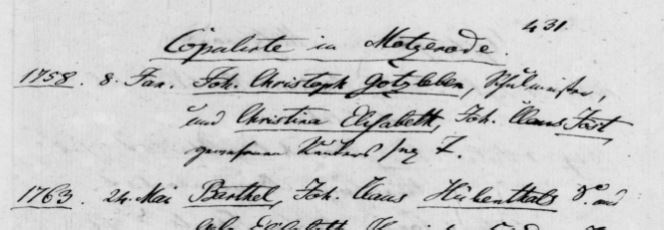 431
Copulirte in Metzerode.
1758. 8. Jan. Joh. Christoph Gotzleben, Schulmeister,
und Christina Elisabeth, Joh. Claus Jost
gewesenen
1763. 24. Mai Barthel, Joh. Claus Hübenthals S. und
Elisabeth